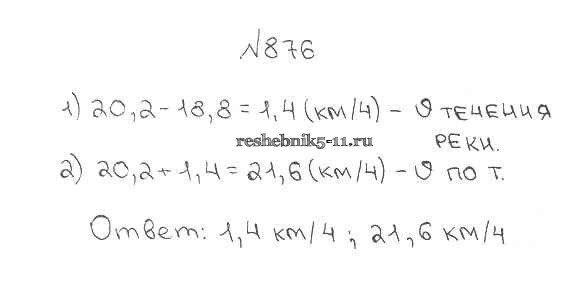 №876
1) 20,2-18,8=1,4(км/ч) - υ течения
reshebnik5-11.ru
реки.
2) 20,2+1,4=21,6(км/ч) - υ по т.
Ответ: 1,4 км/ч; 21,6 км/ч